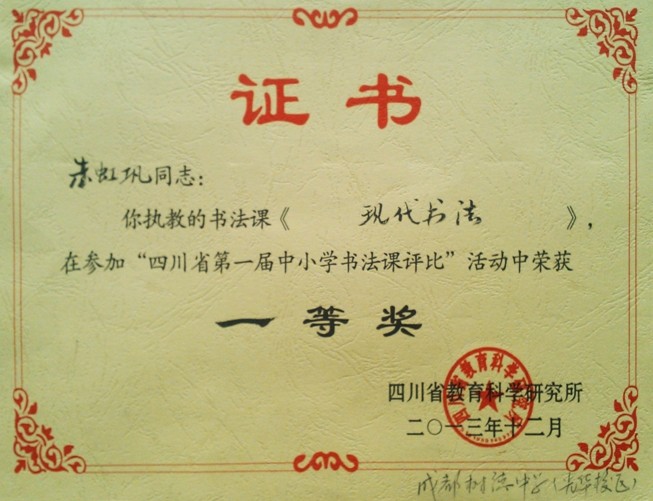 证书
朱虹巩同志：
你执教的书法课《 现代书法 》，
在参加“四川省第一届中小学书法课评比”活动中荣获
一等奖
四川省教育科学研究所
二〇一三年十二月
成都树德中学(光华校区)